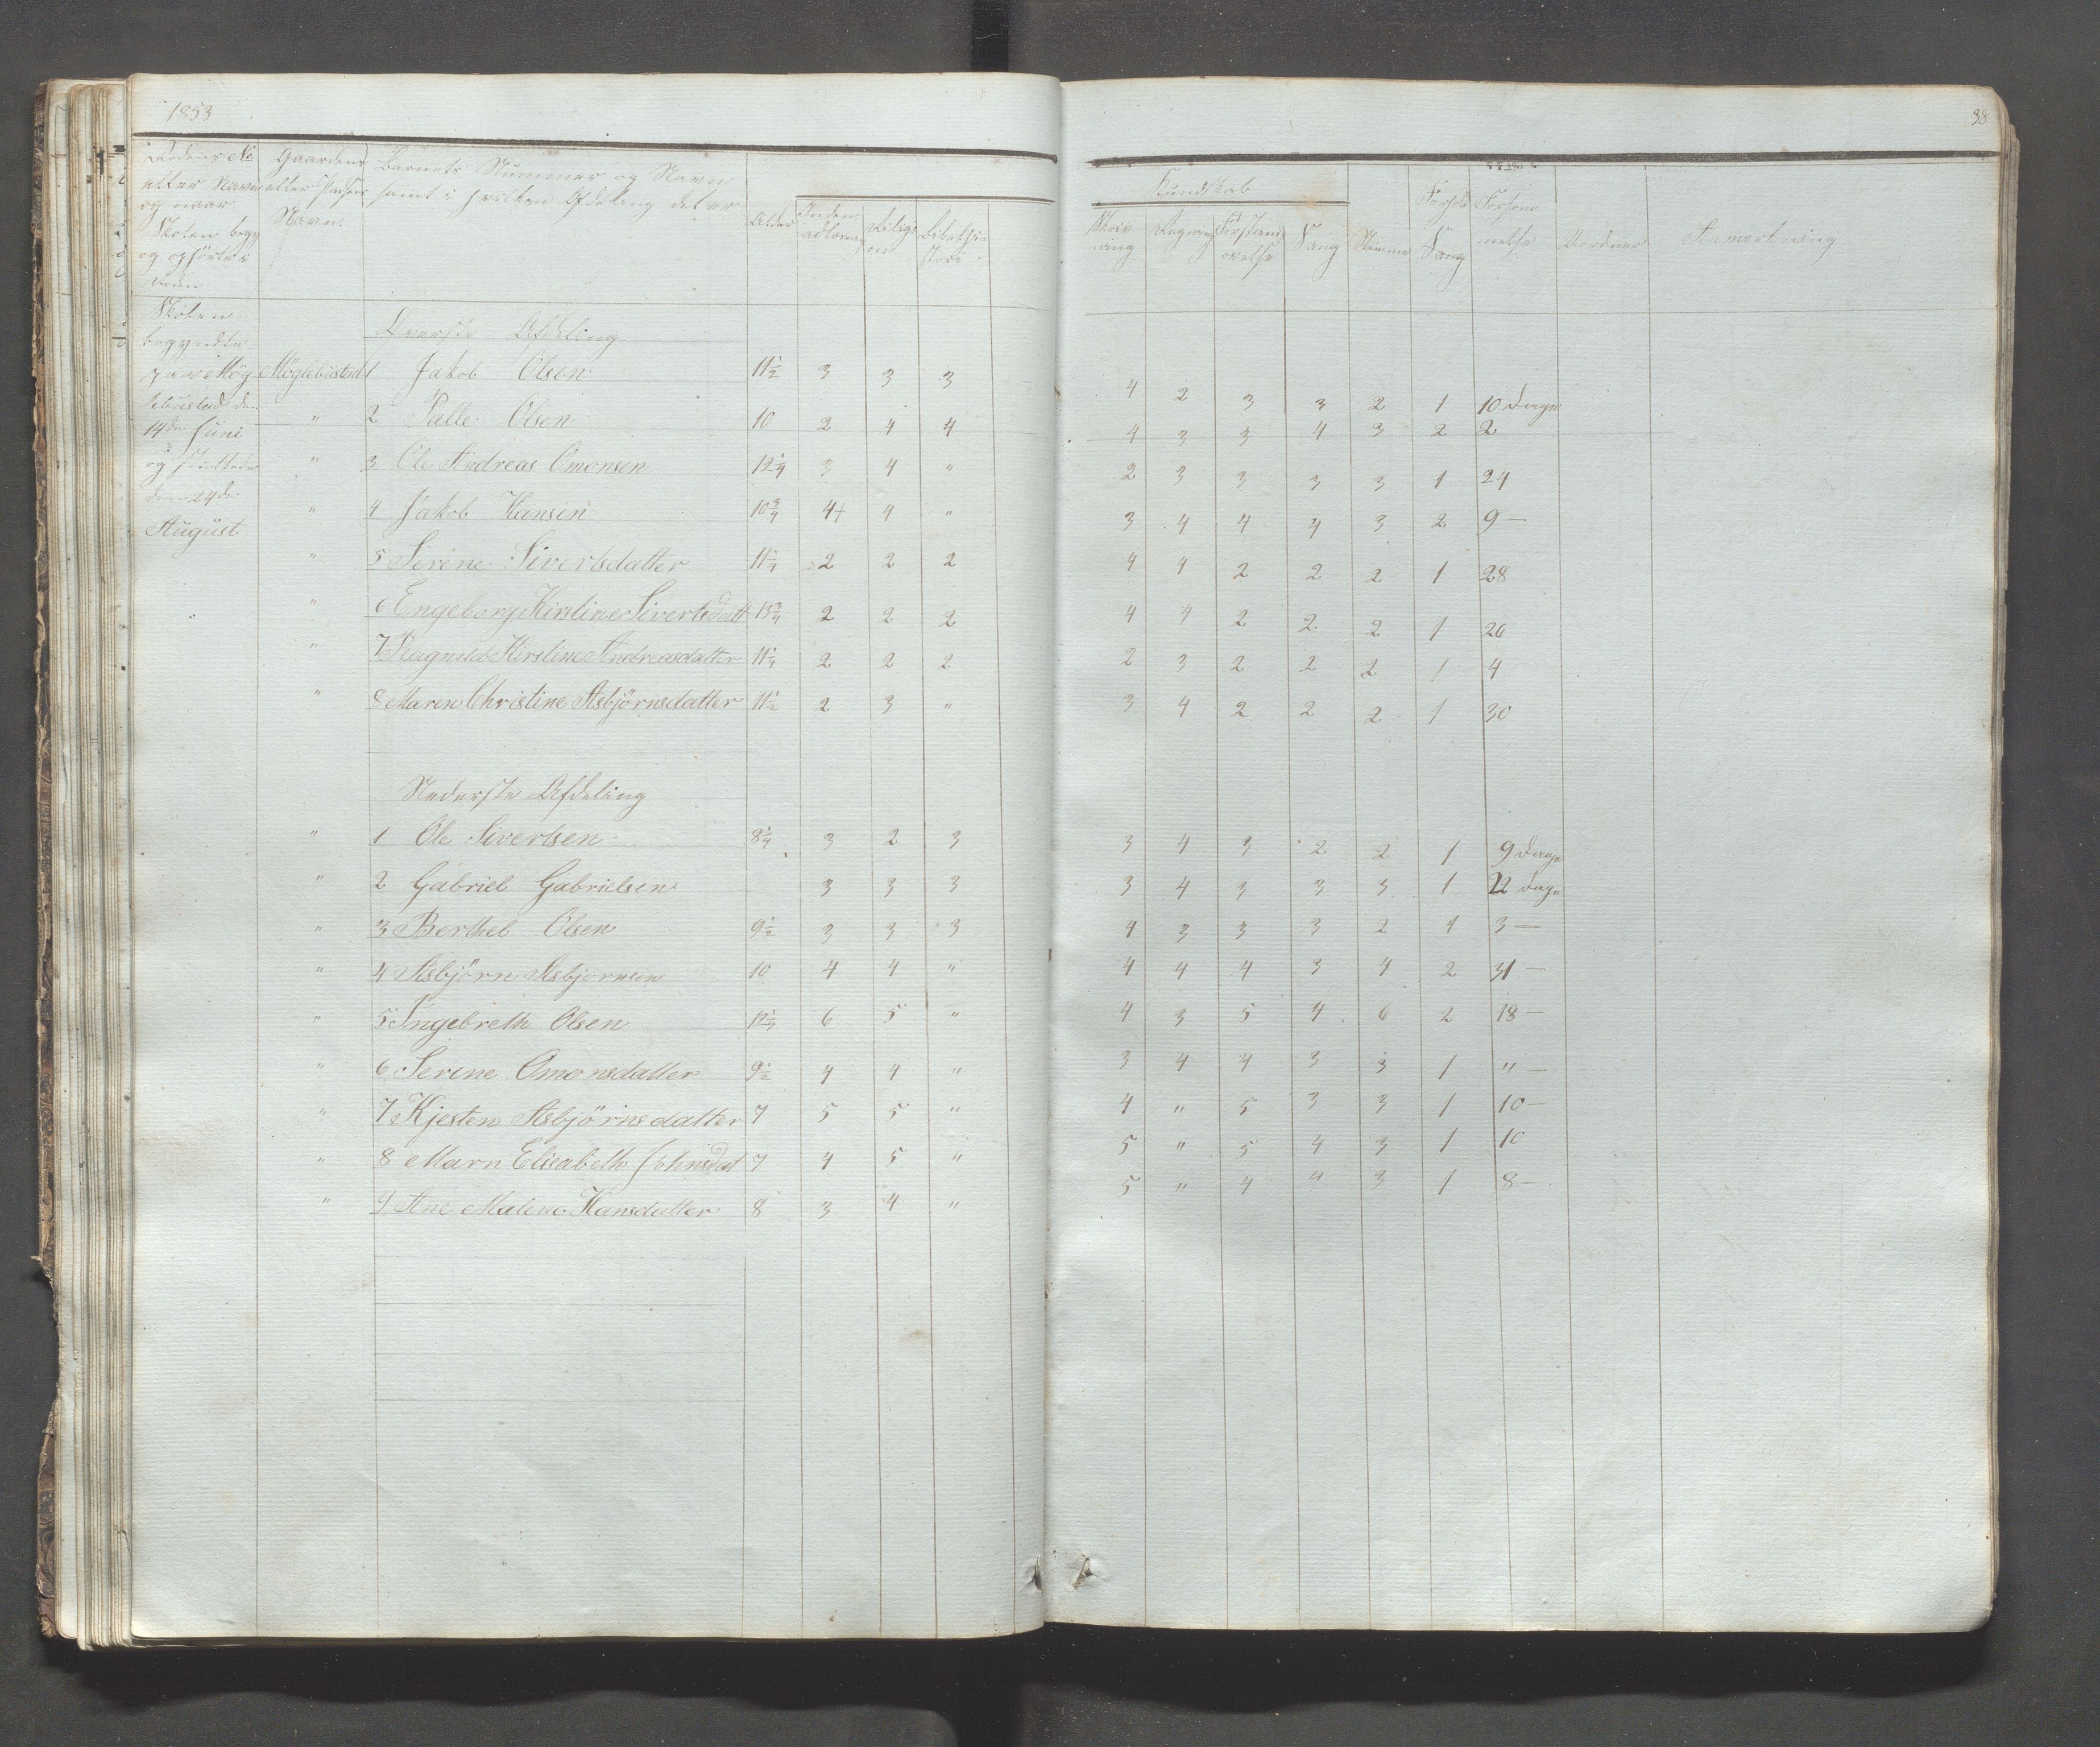 1853
38
Rodens No
eller Navn
og naar
Skolen beg
og ophørte i
Roden
Gaardens
eller Pladsens
Navn
Barnets Nummer og Navn
samt i hvilken Afdeling det er
Alder
Inden
adlæsning
Religi
on
Bibelhi
storie
Kundskab
Skriv
ning
Regning
Forstands
øvelse
Sang
Stemme
Forhold
Forsøm
melse
Anmærkning
Skolen
begyndte
paa Møg
lebustad den
14de Juni
og sluttede
den 24de
August
Øverste Afdeling
Möglebustad 1 Jakob Olsen 11½ 3 3 3 4 2 3 3 2 1 10 Dage
" 2 Palle Olsen 10 2 4 4 4 3 3 4 3 2 2
" 3 Ole Andreas Omonsen 12¼ 3 4 " 2 3 3 3 3 1 24
" 4 Jakob Hansen 10¾ 4+ 4 " 3 4 4 4 3 2 9 —
" 5 Serine Sivertsdatter 11¼ 2 2 2 4 4 2 2 2 1 28
" 6 Engeborg Kirstine Sivertsdatt 13¾ 2 2 2 4 4 2 2 2 1 26
" 7 Ragnild Kirstine Andreasdatter 11¼ 2 2 2 2 3 2 2 2 1 4
" 8 Maren Christine Asbjörnsdatter 11½ 2 3 " 3 4 2 2 2 1 30
Nederste Afdeling
" 1 Ole Sivertsen 8¼ 3 2 3 3 4 3 2 2 1 9 Dage
" 2 Gabriel Gabrielsen 3 3 3 3 4 3 3 3 1 22 Dage
" 3 Berthel Olsen 9½ 3 3 3 4 3 3 3 2 1 3 —
" 4 Asbjörn Asbjornsen 10 4 4 " 4 4 4 3 4 2 31 —
" 5 Ingebreth Olsen 12¼ 6 5 " 4 3 5 4 6 2 18 —
" 6 Serine Omonsdatter 9½ 4 4 " 3 4 4 3 3 1 " —
" 7 Kjesten Asbjörnsdatter 7 5 5 " 4 " 5 3 3 1 10 —
" 8 Marn Elisabeth Johnsdat 7 4 5 " 5 " 5 4 3 1 10
" 9 Ane Malene Hansdatter 8 3 4 " 5 " 4 4 3 1 8 —